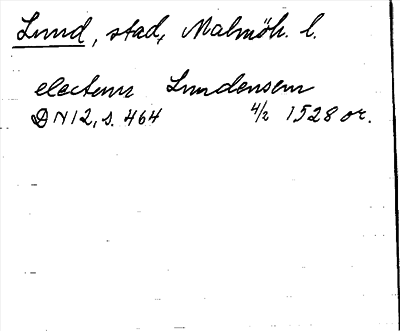 Lund, stad, Malmöh. l.
electum Lundensem
DN 12, s. 464 4/2 1528 or.